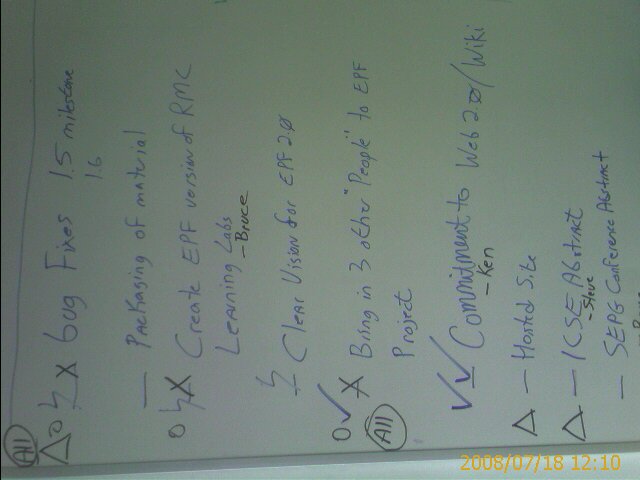 All
bug Fixes 1.5 milestone
1.6
— Packaging of material
Create EPF version of RMC
Learning Labs
- Bruce
Clear Vision for EPF 2.0
Bring in 3 other "People" to EPF
Project
All
Commitment to Web 2.0/Wiki
- Ken
— Hosted Site
— ICSE Abstract
- Steve
— SEPG Conference Abstract
2008/07/18 12:10